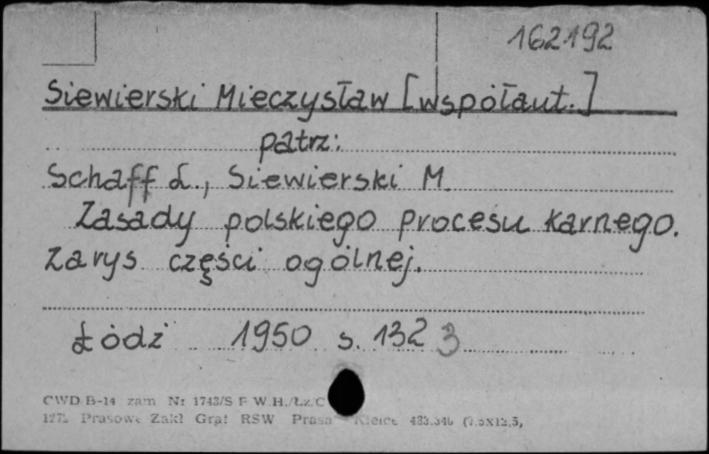 162192
Siewierski Mieczysław [współaut.]
patrz:
Schaff L., Siewierski M.
Zasady polskiego procesu karnego.
Zarys części ogólnej.
Łódź 1950 s. 132 3
CWD B-14 zam Nr 1743/S F W.H./Łz.C
Prasowe Zakł Graf RSW Prasa Kielce